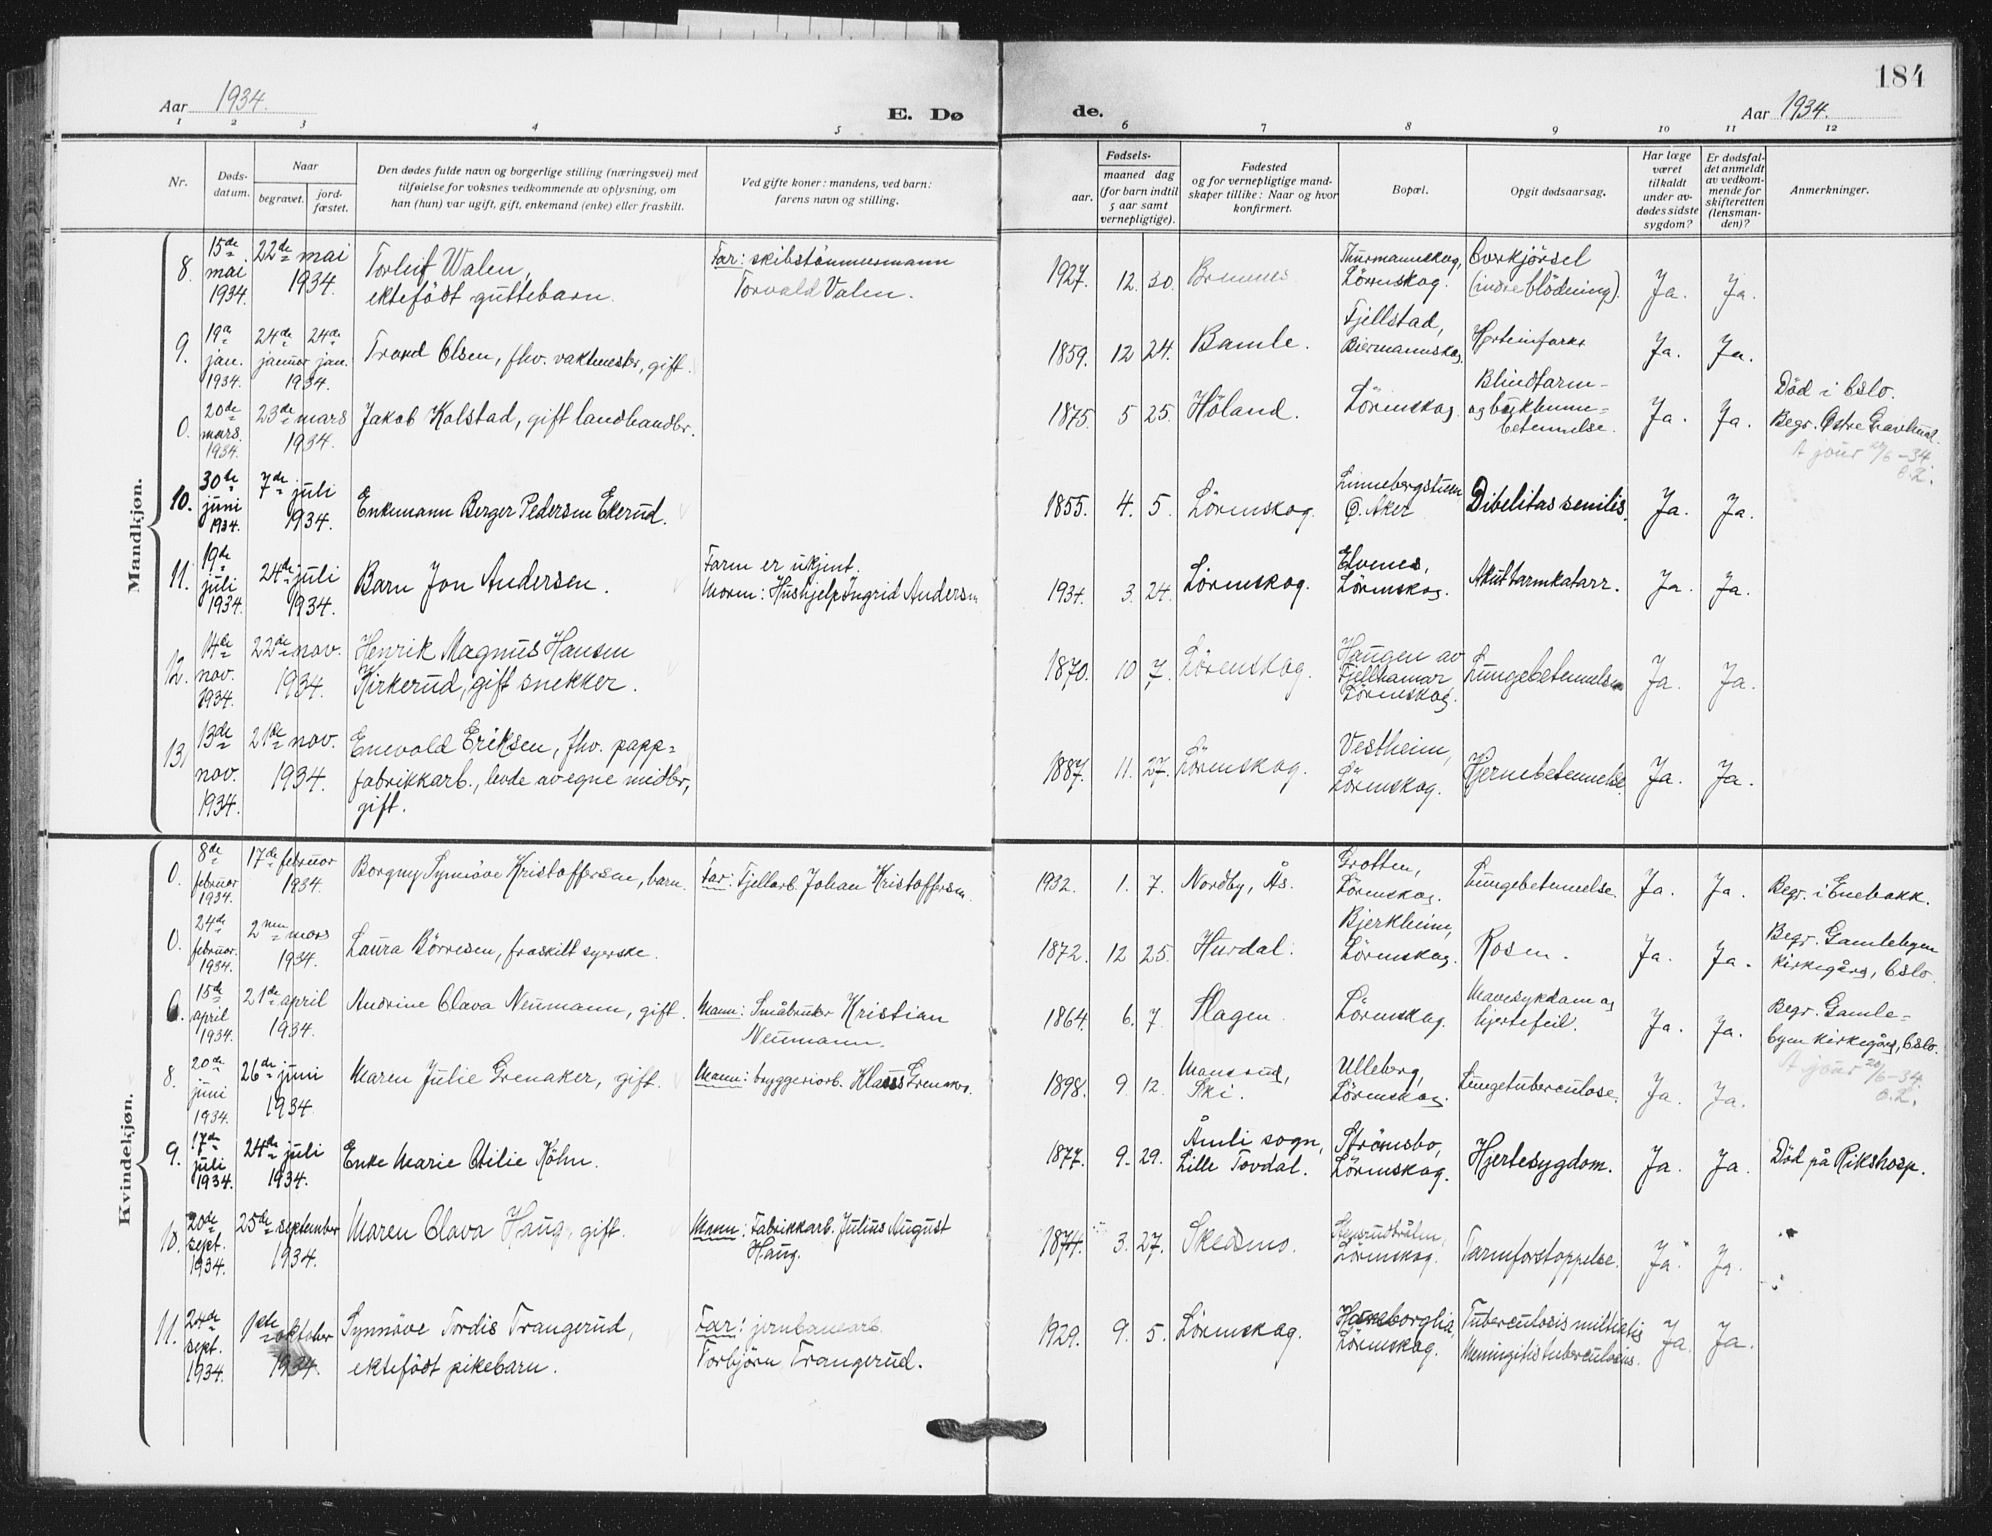 184
Aar 1934.
E. Dø
de.
Aar 1934.
1 2 3 4 5 6 7 8 9 10 11 12
Nr.
Døds-
datum.
Naar
begravet.
jord-
fæstet.
Den dødes fulde navn og borgerlige stilling (næringsvei) med
tilføielse for voksnes vedkommende av oplysning, om
han (hun) var ugift, gift, enkemand (enke) eller fraskilt.
Ved gifte koner: mandens, ved barn:
farens navn og stilling.
Fødsels-
aar.
maaned dag
(for barn indtil
5 aar samt
vernepligtige).
Fødested
og for vernepligtige mand-
skaper tillike: Naar og hvor
konfirmert.
Bopæl.
Opgit dødsaarsag.
Har læge
været
tilkaldt
under av-
dødes sidste
sygdom?
Er dødsfal-
det anmeldt
av vedkom-
mende for
skifteretten
(lensman-
den)?
Anmerkninger.
Mandkjøn.
8. 15de mai 1934. 22de mai 1934. Torleif Walen, ektefödt guttebarn. Far: skibstömmermann Torvald Valen. 1927. 12. 30. Thurmannskog, Lörenskog. Overkjörsel (indre blödning). Ja. Ja.
9. 19a jan. 1934. 24de januar 1934. 24de jan. Trond Olsen, fhv. vaktmester, gift. 1859. 12 24. Bamle. Fjellstad, Biermannskog. Hjerteinfarkt Ja. Ja.
0. 20de mars. 1934. 23de mars 1934. Jakob Kolstad, gift landhandler. 1875. 5 25. Höland. Lörenskog. Blindtarm- og bukhinne- betennelse. Ja. Ja. Död i Oslo. Begr. Østre Gravlund.
A jour 20/6-34.
10. 30de juni 1934. 7de juli 1934. Enkemann Berger Pedersen Ekerud. 1855. 4. 5. Lörenskog. Ö. Aker Dibelitas senilis. Ja. Ja.
11. 19de juli 1934. 24de juli 1934. Barn Jon Andersen. Faren er ukjent. Moren: Hushjelp Ingrid Andersen 1934. 3. 24. Lörenskog. Elvenes, Lörenskog. Akut tarmkatarr. Ja. Ja.
12. 14de nov. 1934. 22de nov. 1934. Henrik Magnus Hansen Kirkerud, gift snekker. 1870. 10 7. Lörenskog. Haugen av Fjellhamar Lörenskog. Lungebetennelse Ja. Ja.
13, 13de nov. 1934. 21de nov. 1934. Enevold Eriksen, fhv. papp= fabrikkarb., levde av egne midler, gift. 1887. 11. 27. Lörenskog. Vestheim, Lörenskog. Hjernebetennelse. Ja. Ja.
Kvindekjøn.
0. 8de februar 1934. 17de februar 1934. Borgny Synnöve Kristoffersen, barn. Far: Fjellarb. Johan Kristoffersen. 1932. 1. 7. Nordby, Ås. Grotten, Lörenskog. Lungebetennelse. Ja. Ja. Begr. i Enebakk.
0. 24de februar. 1934. 2nen mars 1934. Laura Börresen, fraskilt syerske. 1872. 12 25. Hurdal. Bjerkheim, Lörenskog. Rosen. Ja. Ja. Begr. Gamlebyen kirkegård, Oslo.
0. 15de april 1934. 21de april 1934. Andrine Olava Neumann, gift. Mann: Småbruker Kristian Neumann. 1864. 6. 7. Slagen. Lörenskog. Mavesykdom og hjertefeil. Ja. Ja. Begr. Gamle- byen kirkegård, Oslo.
A jour 20/6-34.
8. 20de juni 1934. 26de juni 1934. Maren Julie Grenaker, gift. Mann: bryggeriarb. Klaus Grenaker. 1898. 9. 12. Ski. Ulleberg, Lörenskog. Lungetuberculose. Ja. Ja.
9. 17de juli 1934. 24de juli 1934. Enke Marie Otilie Köhn. 1877. 9. 29. Åmli sogn, Lille Tovdal. Strömsbo, Lörenskog. Hjertesygdom. Ja. Ja. Död på Rikshosp.
10. 20de sept. 1934. 25de september 1934. Maren Olava Haug, gift. Mann: Fabrikkarb. Julius August Haug. 1874. 3. 27. Skedsmo. Lörenskog. Tarmforstoppelse. Ja Ja.
11. 24de sept. 1934. 1ste oktober 1934. Synnöve Tordis Trangerud, ektefödt pikebarn. Far: jernbanearb. Torbjörn Trangerud. 1929. 9. 5. Lörenskog. Haneborglia, Lörenskog. Tuberculosis miliaris Meningitis tuberculosis. Ja. Ja.